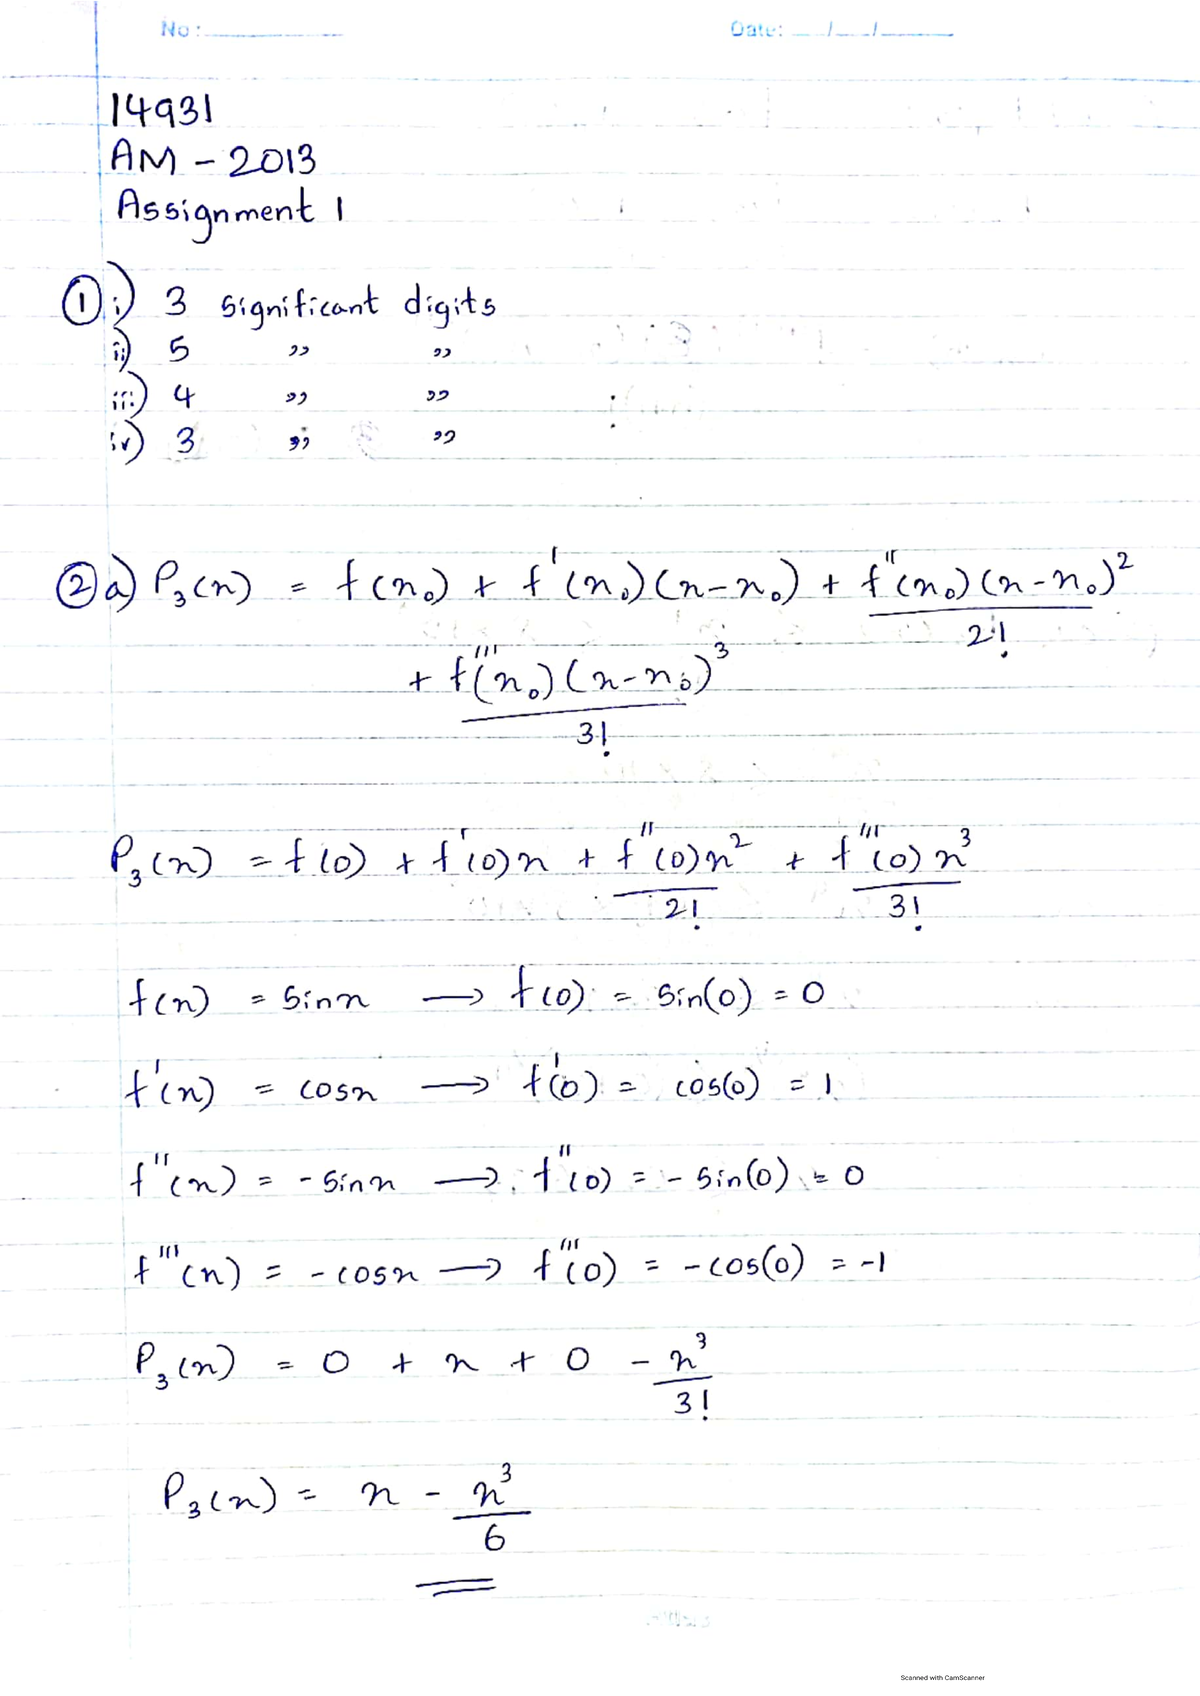 No: Date: / /
14931
AM - 2013
Assignment 1
① i) 3 significant digits
ii) 5 ,, ,,
iii) 4 ,, ,,
iv) 3 ,, ,,
② a) P₃(x) = f(x₀) + f'(x₀)(x-x₀) + f''(x₀)(x-x₀)²
2!
+ f'''(x₀)(x-x₀)³
3!
P₃(x) = f(0) + f'(0)x + f''(0)x² + f'''(0)x³
2! 3!
f(x) = sinx → f(0) = sin(0) = 0
f'(x) = cosx → f'(0) = cos(0) = 1
f''(x) = -sinx → f''(0) = -sin(0) = 0
f'''(x) = -cosx → f'''(0) = -cos(0) = -1
P₃(x) = 0 + x + 0 - x³
3!
P₃(x) = x - x³
6
Scanned with CamScanner